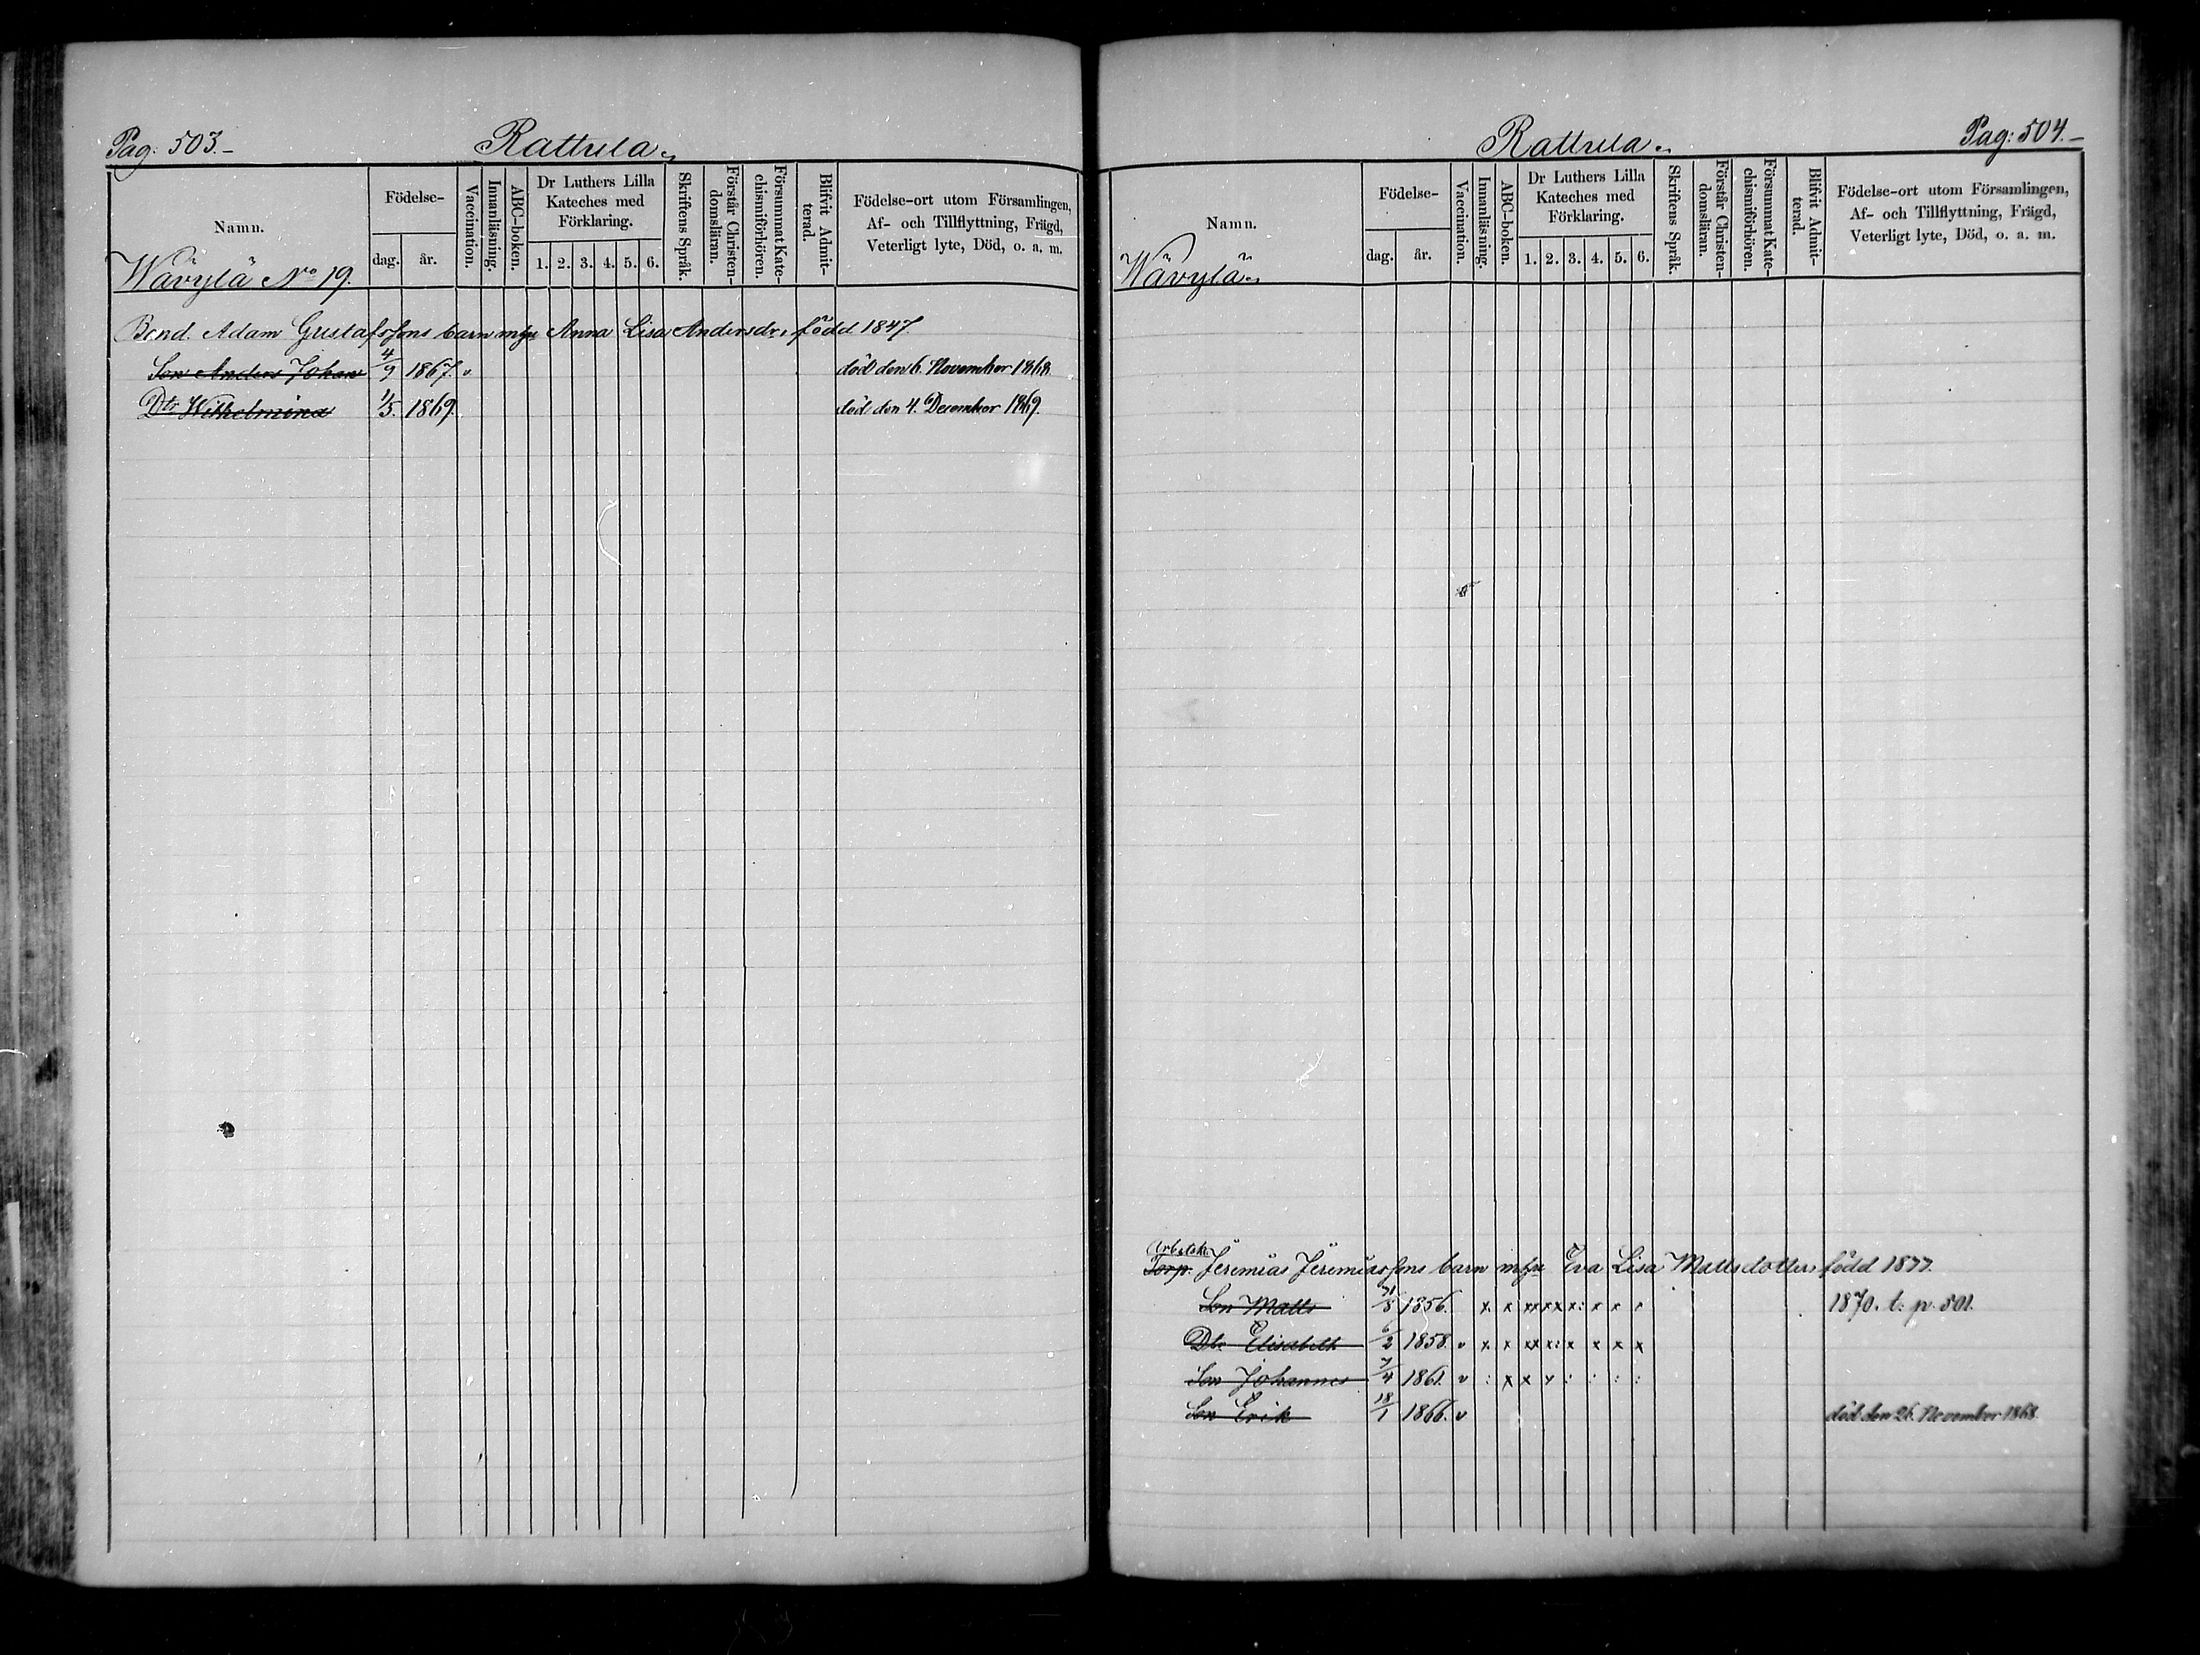 Pag: 503.–
Rattula.
Namn.
Födelse-
dag.
år.
Vaccination.
Innanläsning.
ABC-boken.
Dr Luthers Lilla
Kateches med
Förklaring.
1. 2. 3. 4. 5. 6.
Skriftens Språk.
Förstår Christen-
domsläran.
Försummat Kate-
chismiförhören.
Blifvit Admit-
terad.
Födelse-ort utom Församlingen,
Af- och Tillflyttning, Frägd,
Veterligt lyte, Död, o. a. m.
Wävylä No 19.
Bond. Adam Gustafssons barn m hu Anna Lisa Andersdr, född 1847
Son Anders Johan 4/9 1867. v död den 6. November 1868
Dtr Wilhelmina 1/5. 1869. död den 4. December 1869.
Pag: 504.–
Rattula.
Namn.
Födelse-
dag.
år.
Vaccination.
Innanläsning.
ABC-boken.
Dr Luthers Lilla
Kateches med
Förklaring.
1. 2. 3. 4. 5. 6.
Skriftens Språk.
Förstår Christen-
domsläran.
Försummat Kate-
chismiförhören.
Blifvit Admit-
terad.
Födelse-ort utom Församlingen,
Af- och Tillflyttning, Frägd,
Veterligt lyte, Död, o. a. m.
Wävylä.
Arbetsk.
Torp. Jeremias Jeremiassons barn m hu Eva Lisa Mattsdotter, född
Son Matts 31/8 1856. x x xx xx x: x x 1870. t. p. 501.
Dtr Elisabeth 6/2 1858. v x x xx x: x x x x
Son Johannes 7/4 1861. v : x x x : : : :
Son Erik 18/1 1866. v död den 26. November 1868